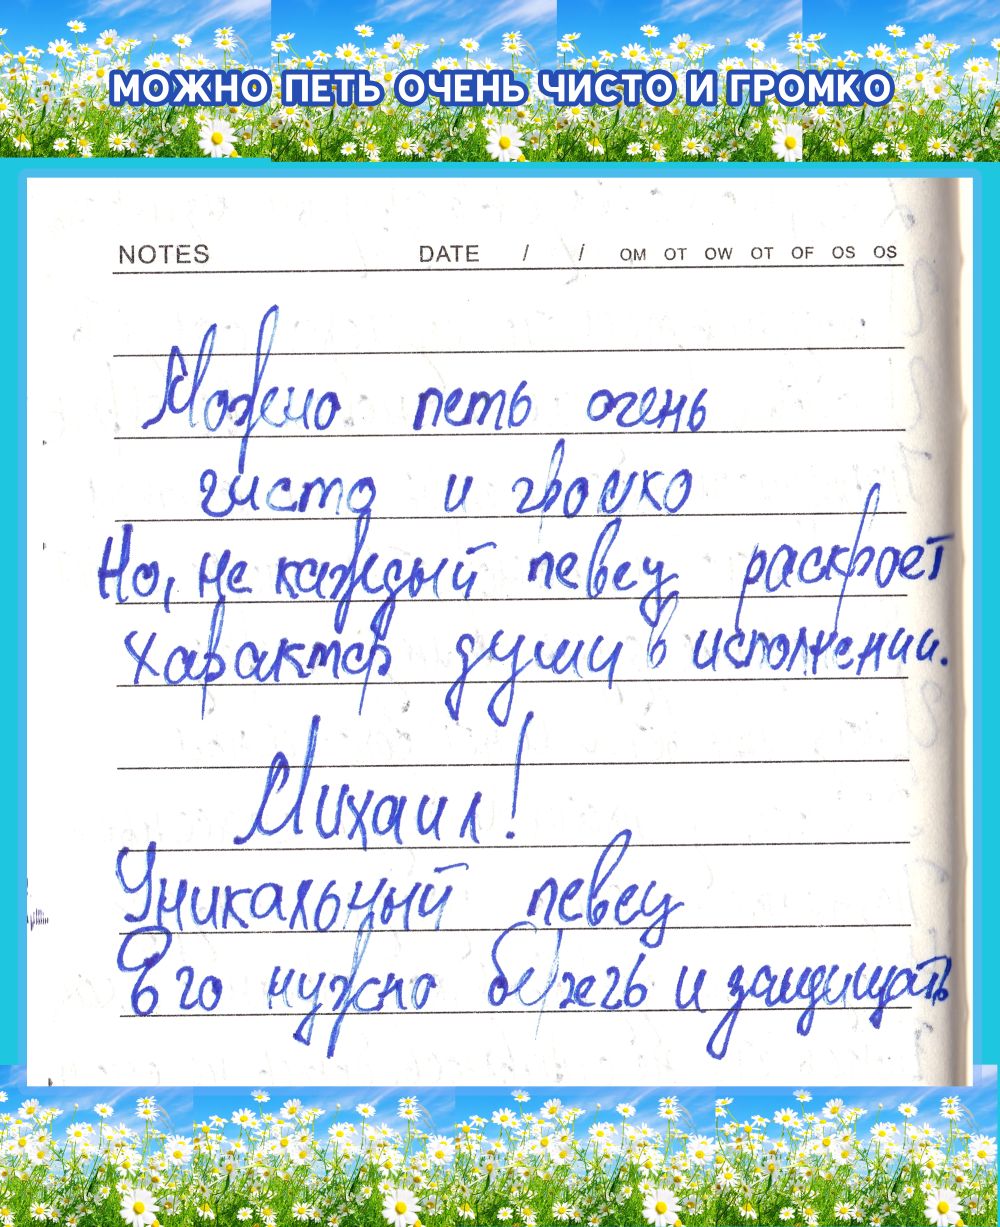 МОЖНО ПЕТЬ ОЧЕНЬ ЧИСТО И ГРОМКО
NOTES DATE / / OM OT OW OT OF OS OS
Можно петь очень
чисто и громко
Но, не каждый певец раскроет
характер души в исполнении.
Михаил!
Уникальный певец
Его нужно беречь и защищать